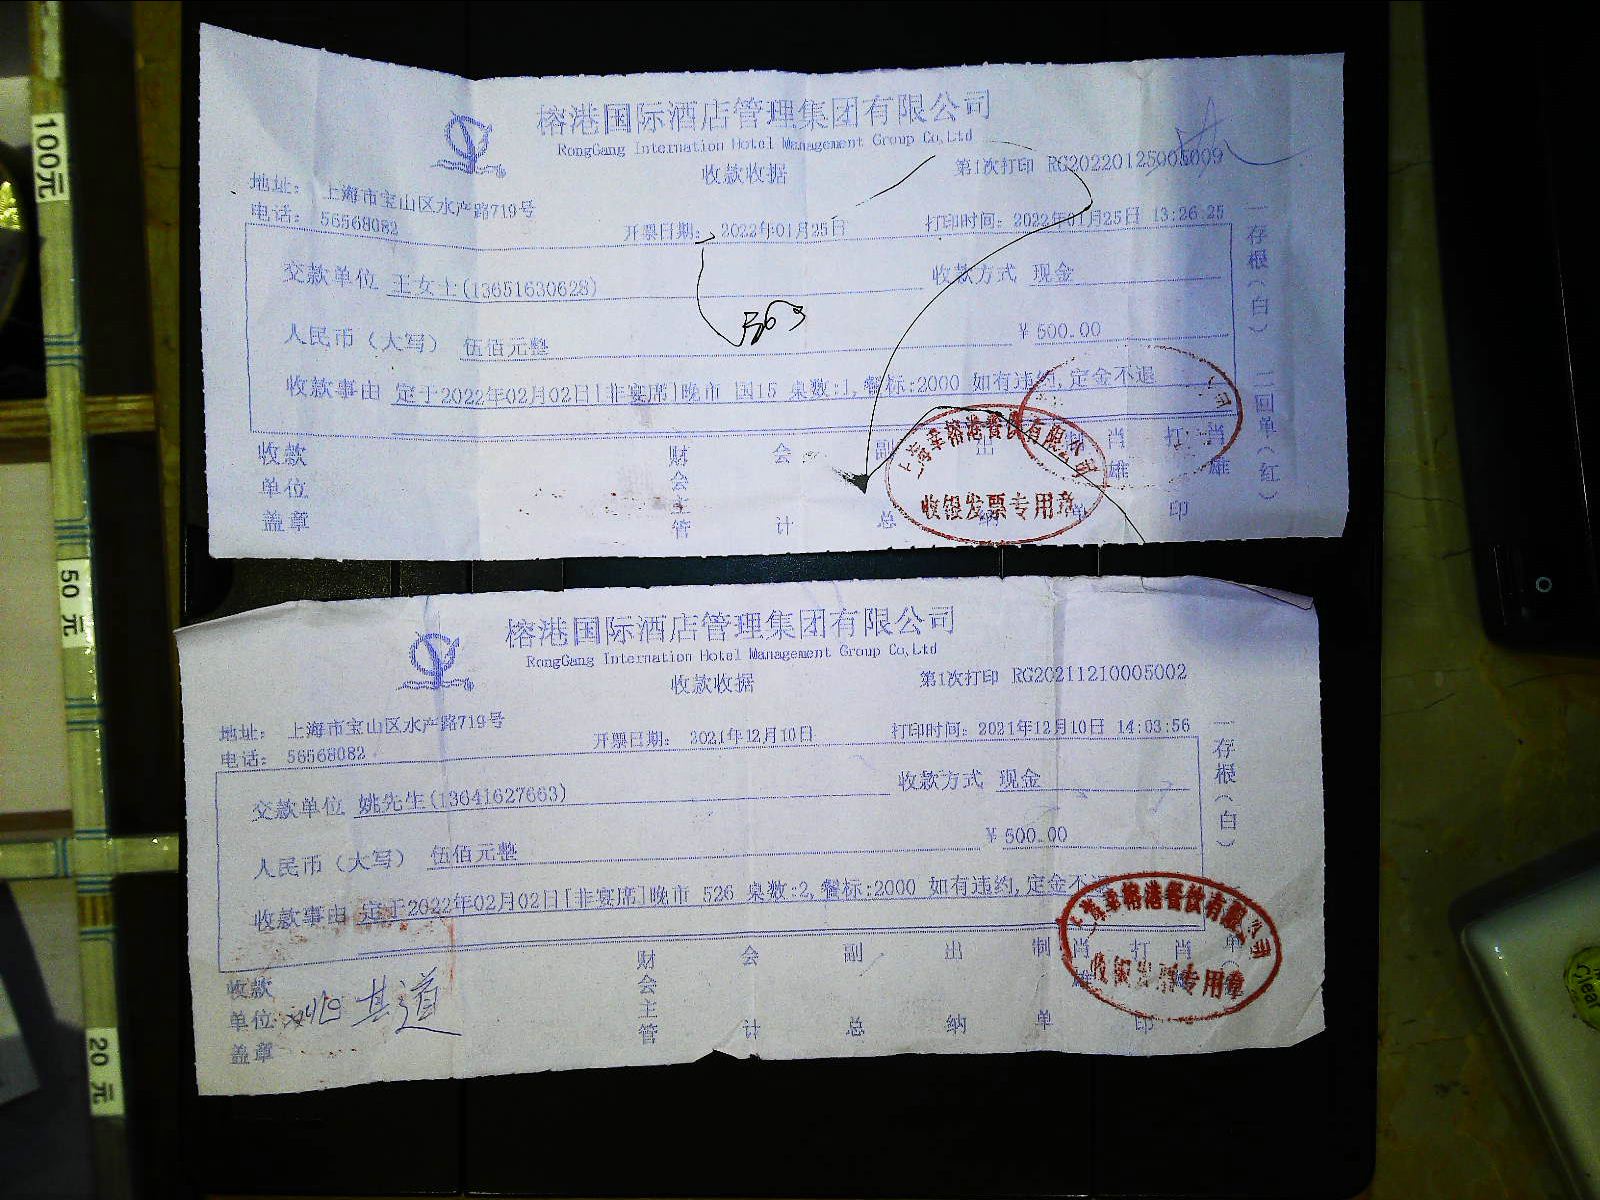 100元
50元
20元
榕港国际酒店管理集团有限公司
RongGang Internation Hotel Management Group Co,Ltd
收款收据
第1次打印 RG20220125005009
地址： 上海市宝山区水产路719号
电话： 56568082
开票日期： 2022年01月25日
打印时间：2022年01月25日 13:26:25
交款单位 王女士(13651630628)
收款方式 现金
人民币（大写） 伍佰元整
￥500.00
563
收款事由 定于2022年02月02日[非宴席]晚市 国15 桌数:1,餐标:2000 如有违约,定金不退
收款单位盖章
财会主管
会计
副总
出纳
制单
肖雄
打印
肖雄
一存根（白） 二回单（红）
上海幸榕港餐饮有限公司
收银发票专用章
榕港国际酒店管理集团有限公司
RongGang Internation Hotel Management Group Co,Ltd
收款收据
第1次打印 RG20211210005002
地址： 上海市宝山区水产路719号
电话： 56568082
开票日期： 2021年12月10日
打印时间：2021年12月10日 14:03:56
交款单位 姚先生(13641627663)
收款方式 现金
人民币（大写） 伍佰元整
￥500.00
收款事由 定于2022年02月02日[非宴席]晚市 526 桌数:2,餐标:2000 如有违约,定金不退
收款单位盖章
其道
财会主管
会计
副总
出纳
制单
肖雄
打印
肖
一存根（白）
上海幸榕港餐饮有限公司
收银发票专用章
Clear